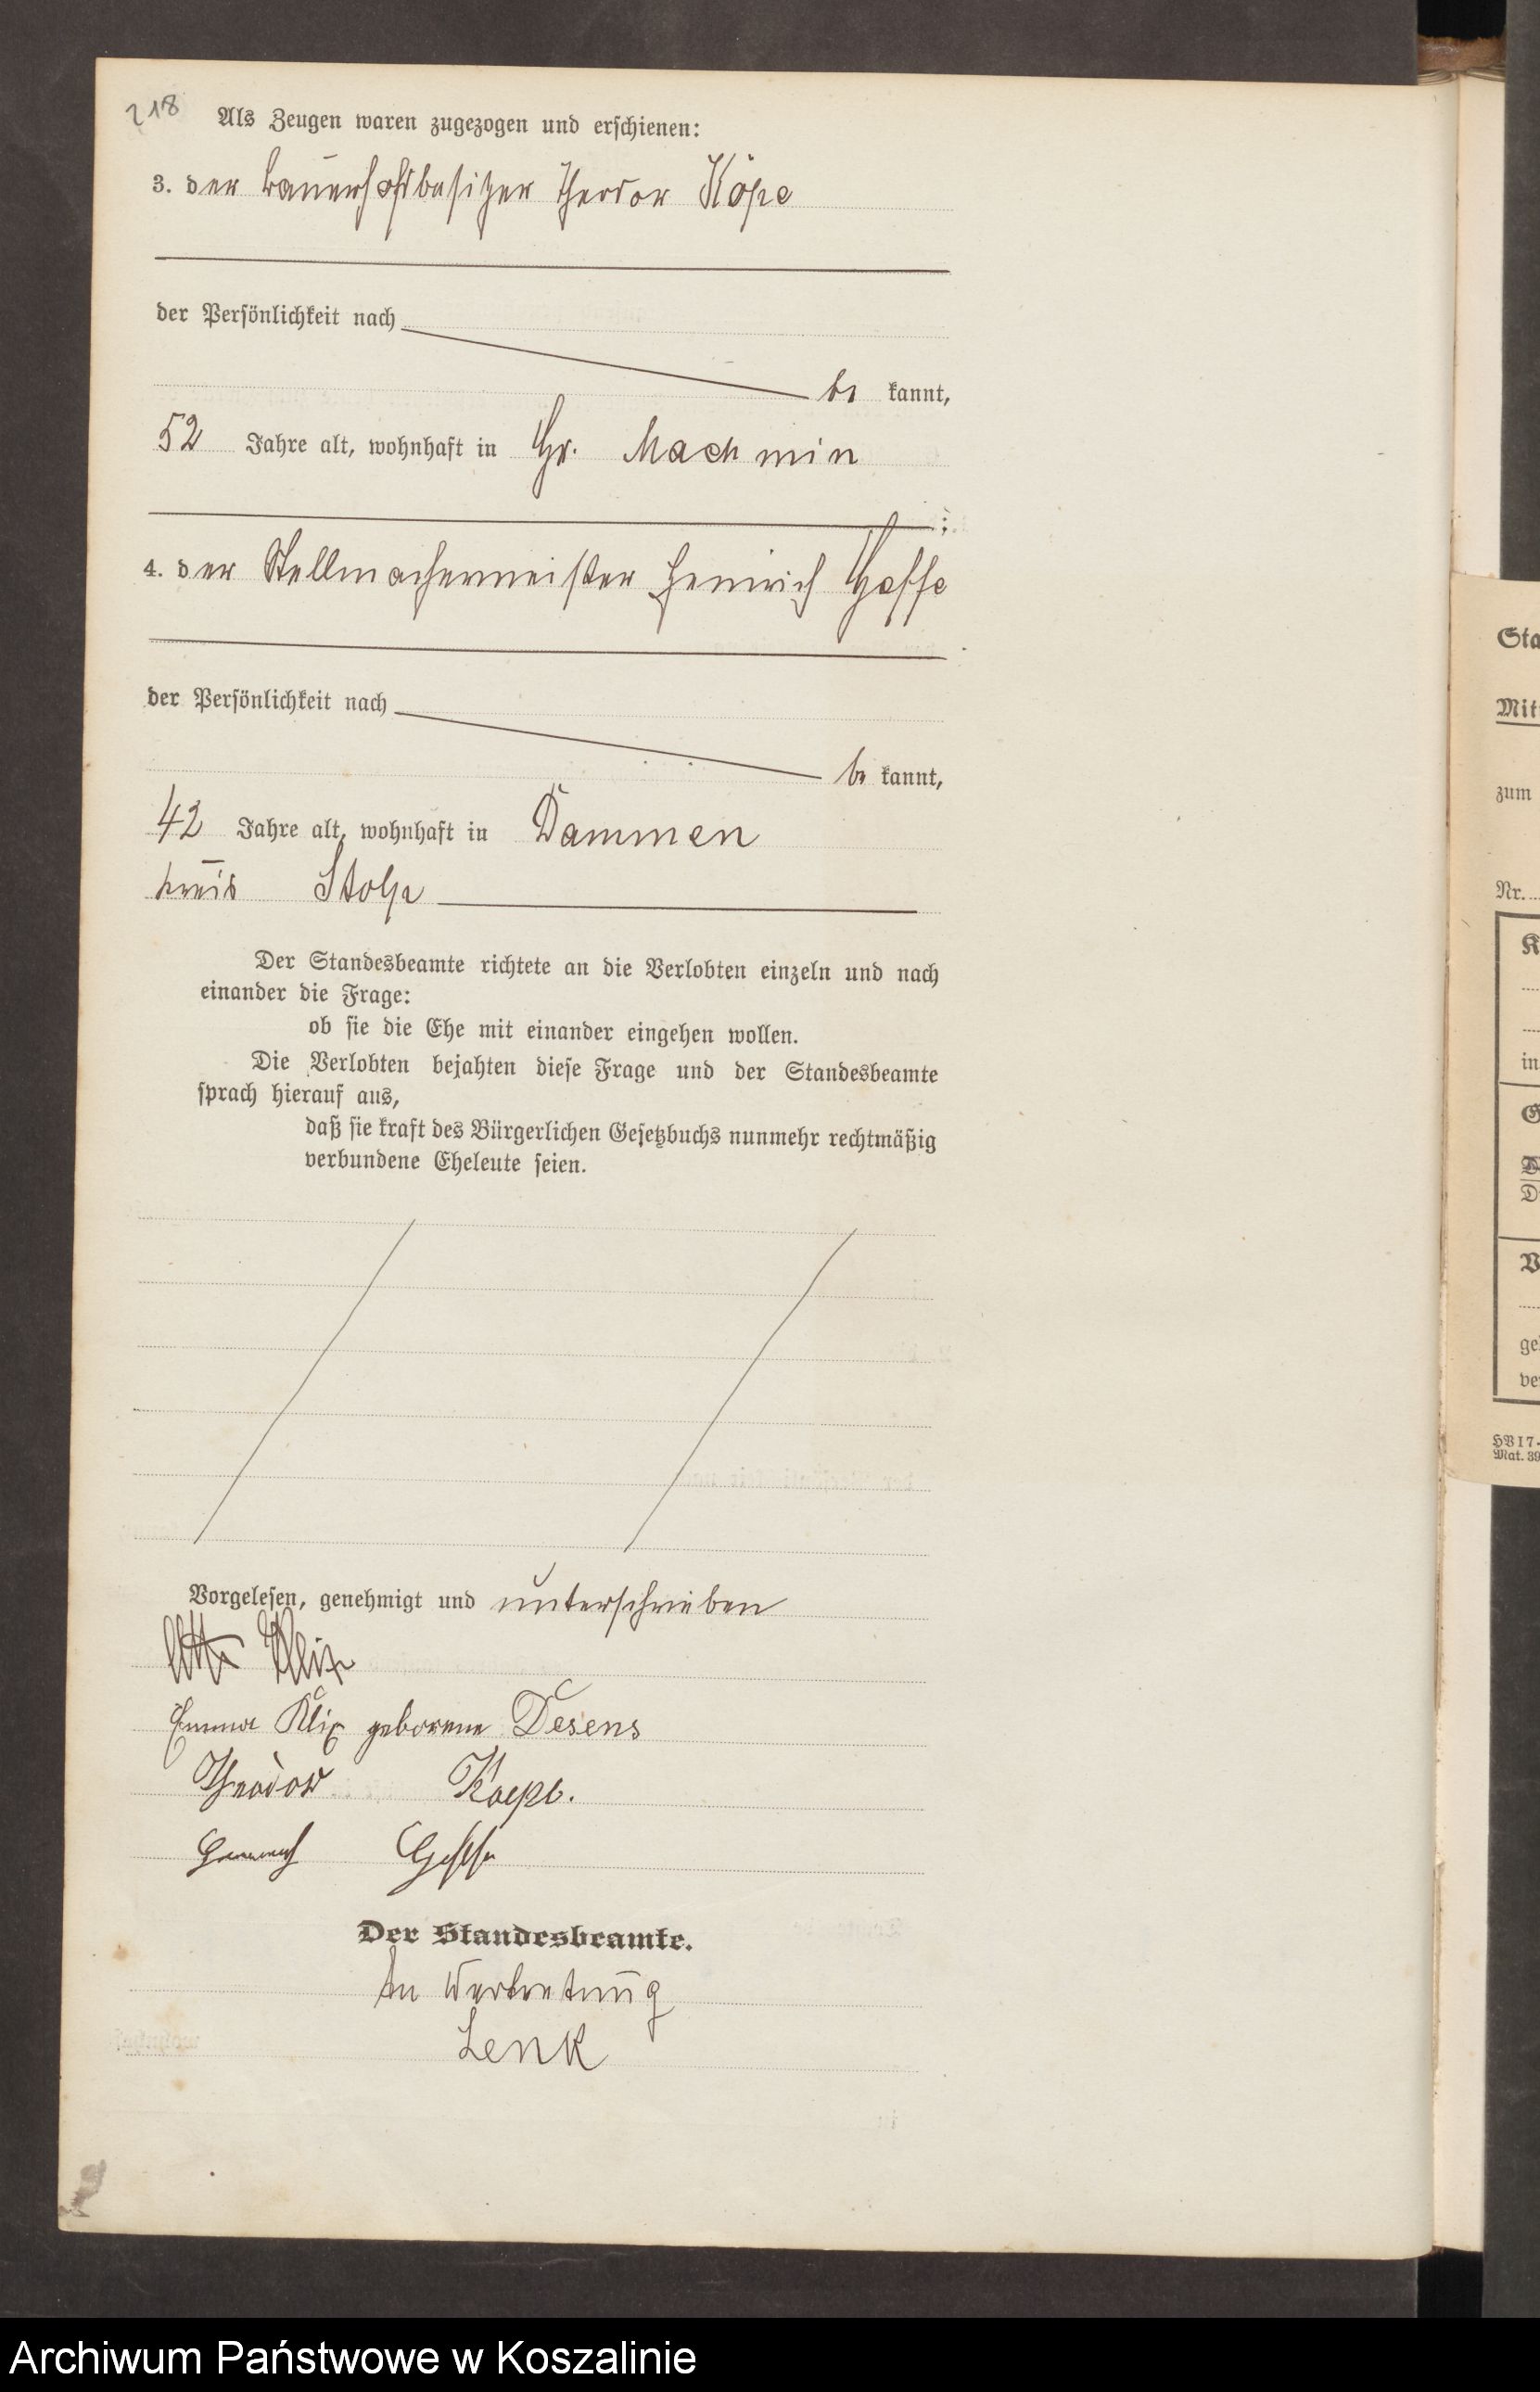 218
Als Zeugen waren zugezogen und erschienen:
3. der Bauernhofsbesitzer Theodor Köpe
der Persönlichkeit nach
be kannt,
52 Jahre alt, wohnhaft in Gr. Machmin
;
4. der Stellmachermeister Heinrich Geffe
der Persönlichkeit nach
be kannt,
42 Jahre alt, wohnhaft in Dammen
Kreis Stolp
Der Standesbeamte richtete an die Verlobten einzeln und nach
einander die Frage:
ob sie die Ehe mit einander eingehen wollen.
Die Verlobten bejahten diese Frage und der Standesbeamte
sprach hierauf aus,
daß sie kraft des Bürgerlichen Gesetzbuchs nunmehr rechtmäßig
verbundene Eheleute seien.
Vorgelesen, genehmigt und unterschrieben
Otto Klix
Emma Klix geborene Desens
Theodor Koepe.
Heinrich
Der Standesbeamte.
In Vertretung
Lenk
Sta
Mit
zum
Nr.
K
in
G
D
V
ge
ve
HB17
Mat. 39
Archiwum Państwowe w Koszalinie